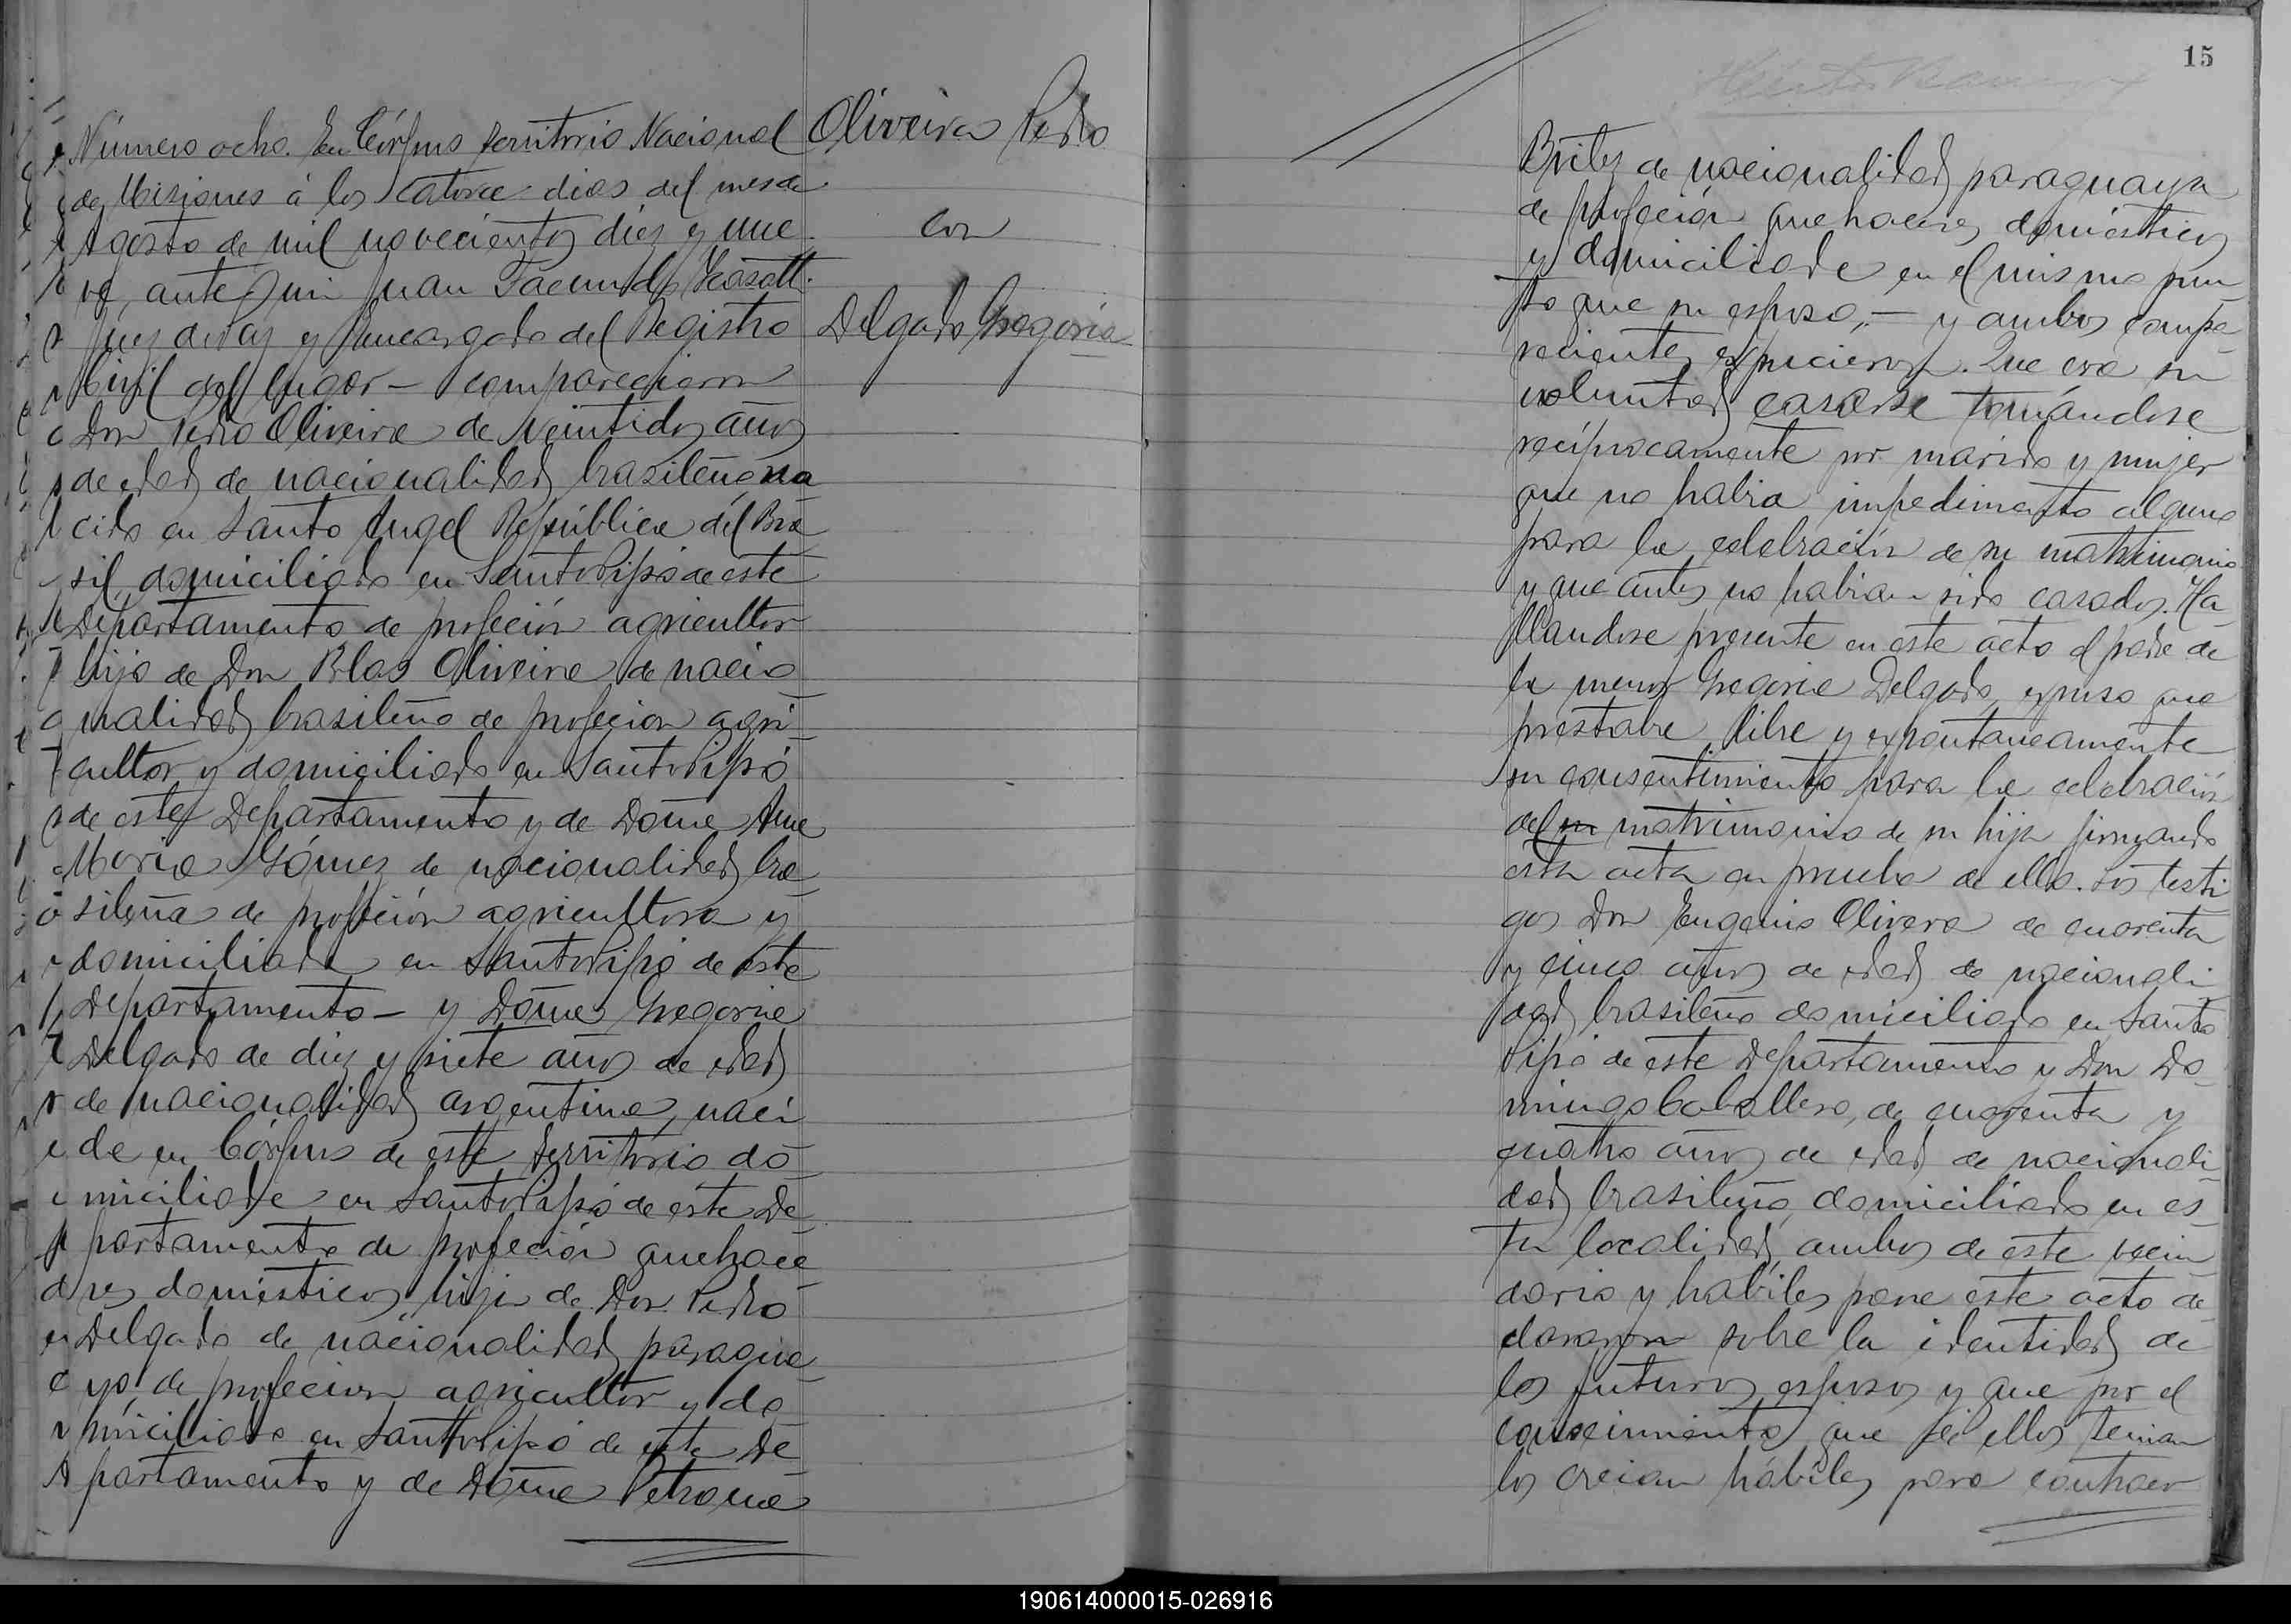 Número ocho. En Córpus territorio Nacional
de Misiones á los catorce dias del mes de
Agosto de mil novecientos diez y nue
ve, ante mi Juan Facundo
Juez de Paz y Encargado del Registro
Civil del lugar - comparecieron
Don Pedro Oliveira de veintidos años
de edad de nacionalidad brasileña na
cido en Santo Angel República del Bra
sil, domiciliado en Santo Pipó de este
Departamento de profeción agricultor
hijo de Don Blas Oliveira de nacio
nalidad brasileña de profecion agri
cultor y domiciliado en Santo Pipó
de este Departamento y de Doña Ana
Maria Gómez de nacionalidad bra
sileña de profeción agricultora y
domiciliada en Santo Pipó de este
Departamento - y Doña Gregoria
Delgado de diez y siete años de edad
de nacionalidad argentina, naci
da en Córpus de este territorio do
miciliada en Santo Pipó de este De
partamento de profeción quehace
res domésticos, hija de Don Pedro
Delgado de nacionalidad paragua
yo, de profecion agricultor y do
miciliado en Santo Pipó de este De
partamento y de Doña Petrona
Oliveira Pedro
con
Delgado Gregoria
15
Britez de nacionalidad paraguaya
de profeción quehaceres domésticos
y domiciliada en el mismo pun
to que su esposo, - y ambos compa
recientes expucieron. Que era su
voluntad casarse tomándose
recíprocamente por marido y mujer
que no habia impedimento alguno
para la celebración de su matrimonio
y que antes no habian sido casados. Ha
llandose presente en este acto el padre de
la menor Gregoria Delgado, expuso que
prestaba libre y expontaneamente
su consentimiento para la celebración
del su matrimonio de su hija firmando
esta acta en prueba de ello. Los testi
gos Don Eugenio Olivera de cuarenta
y cinco años de edad de nacionali
dad brasileña domiciliado en Santo
Pipó de este Departamento y Don Do
mingo Caballero, de cuarenta y
cuatro años de edad de nacionali
dad brasileña, domiciliado en es
ta localidad, ambos de este vecin
dario y habiles para este acto de
clararon sobre la identidad de
los futuros esposos y que por el
conocimiento que de ellos tenian
los creian hábiles para contraer
190614000015-026916